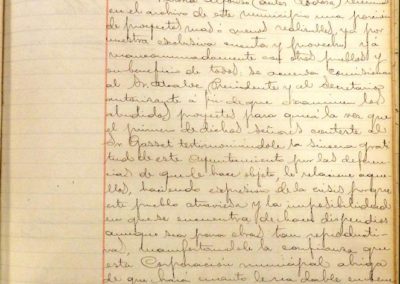 en el archivo de este municipio una porción
de proyectos mas o menos realizables, ya por
nuestra exclusiva cuenta y provecho, ya
mancomunadamente con otros pueblos y
en beneficio de todos, se acuerda comisionar
al Sr. Alcalde Presidente y al Secretario
autorizante á fin de que examinen los
aludidos proyectos para que á la vez que
el primero de dichos señores conteste al
Sr. Gasset testimoniándole la sincera grati
tud de este Ayuntamiento por las deferen
cias de que le hace objeto, le relacione aque
llos, haciendo expresion de la crisis porque
este pueblo atraviesa y la imposibilidad
en que se encuentra de hacer dispendios
aunque sea para obras tan reproducti
vas, manifestandole la confianza que
esta Corporación municipal abriga
de que hará cuanto le sea dable